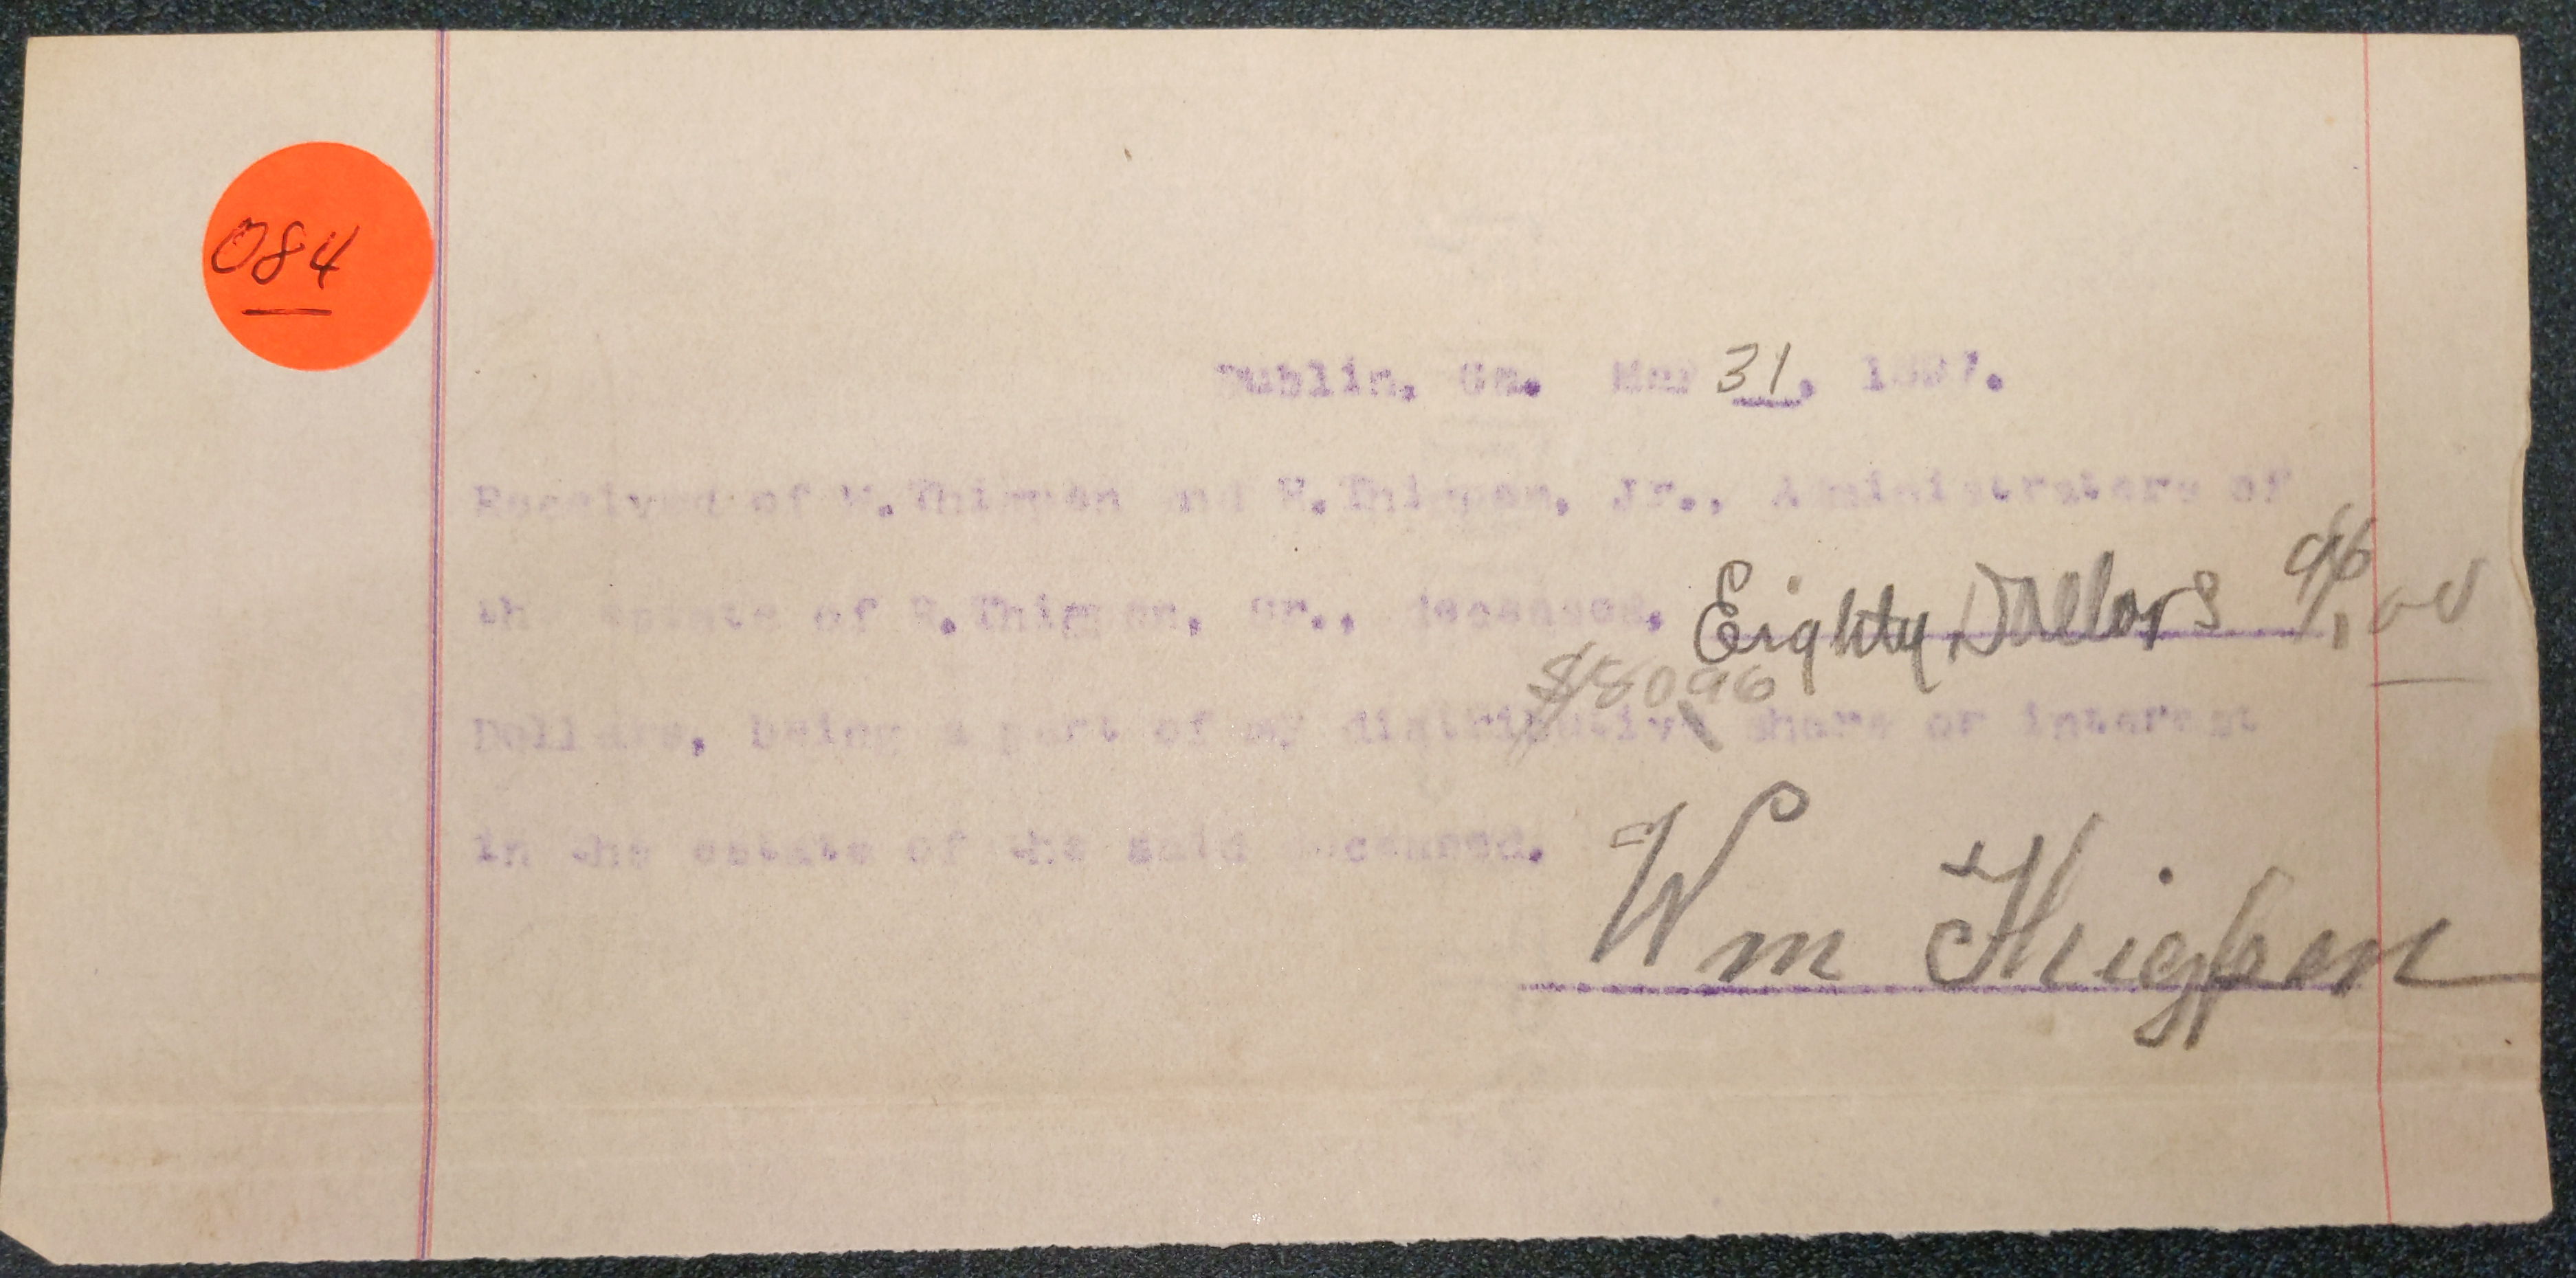 084
Dublin, Ga. Mar 31, 1897.
Received of W. Thigpen and R. Thigpen, Jr., Administrators of
the estate of R. Thigpen, Sr., deceased, Eighty Dollars 96/100
$80 96
Dollars, being a part of my distributive share or interest
in the estate of the said deceased.
Wm Thigpen